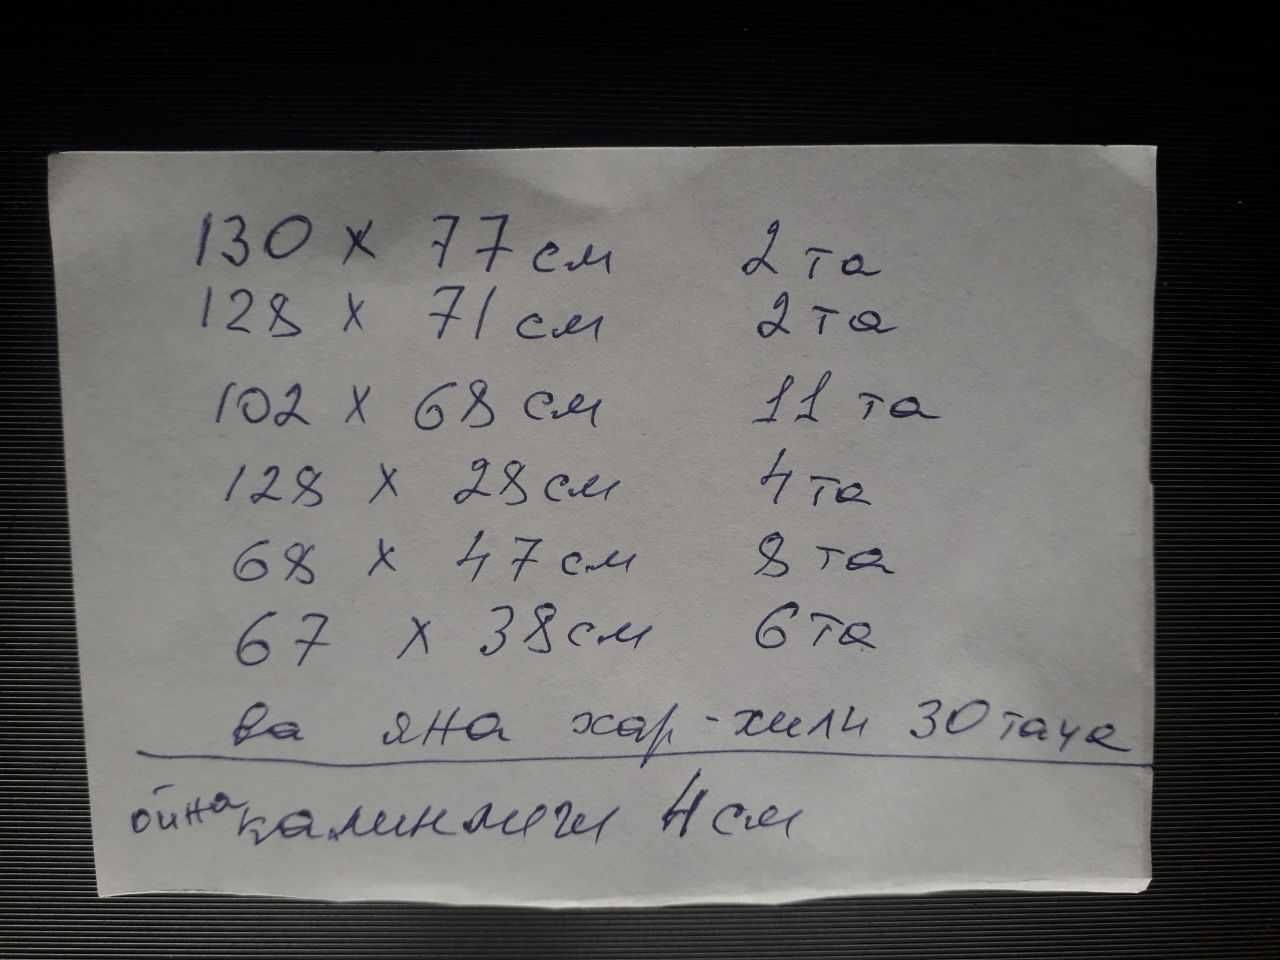 130 x 77 см 2 та
128 x 71 см 2 та
102 x 68 см 11 та
128 x 28 см 4 та
68 x 47 см 8 та
67 x 38 см 6 та
ва яна хар-хили 30 тача
ойна калинлиги 4 см